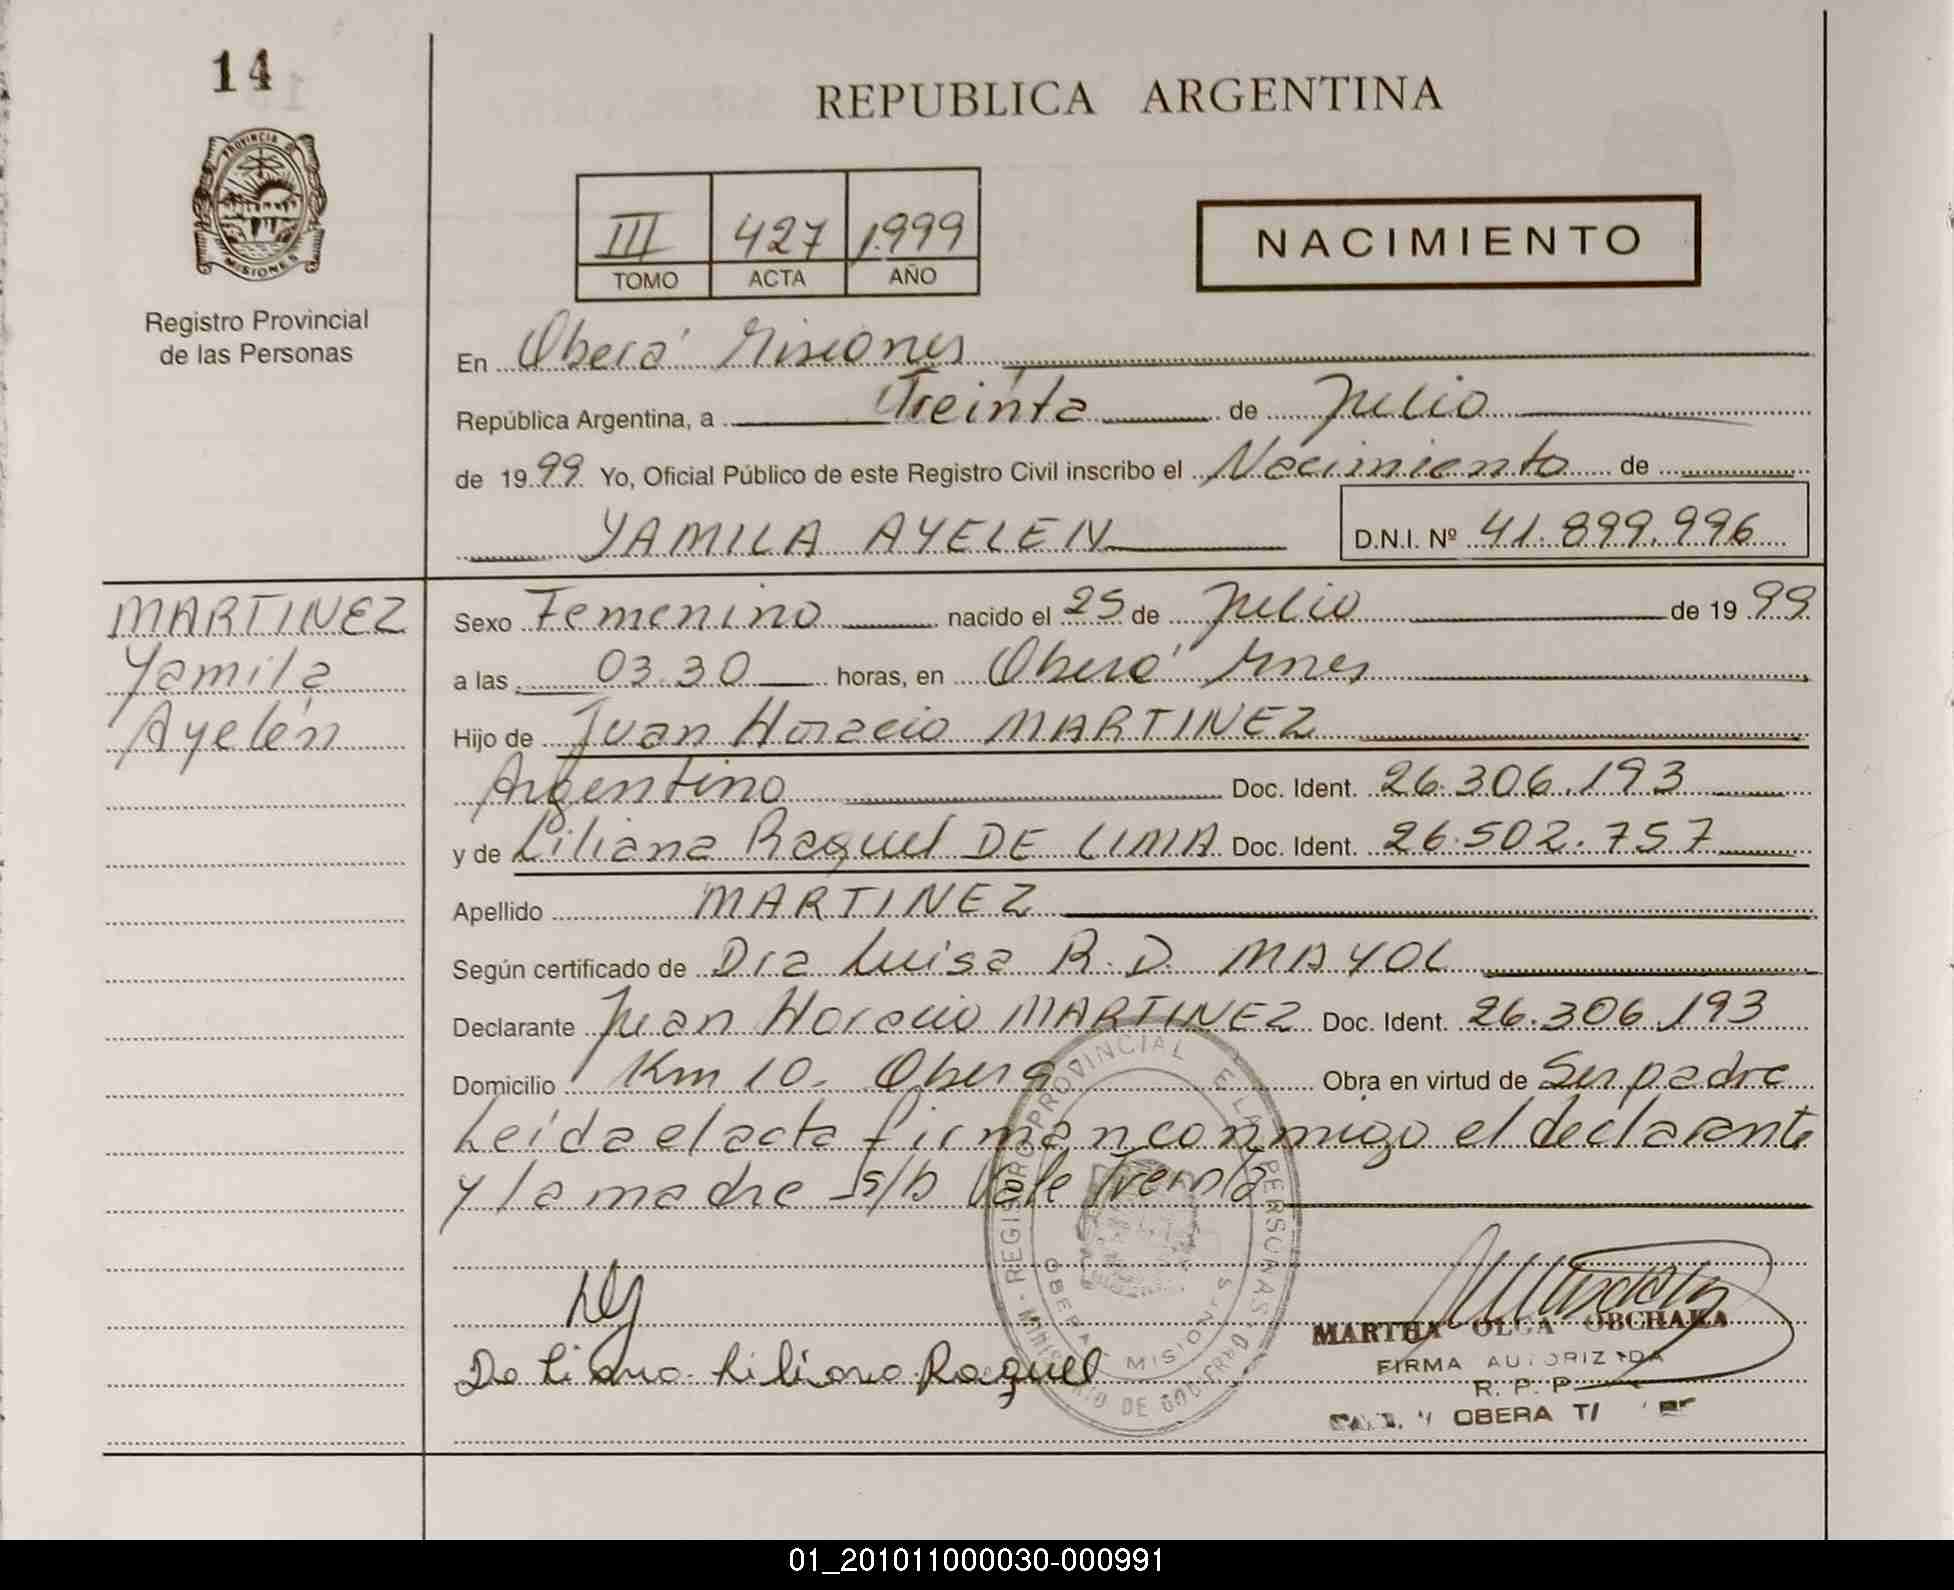 14
PROVINCIA D
MISIONES
Registro Provincial
de las Personas
REPUBLICA ARGENTINA
III 427 1.999
TOMO ACTA AÑO
NACIMIENTO
En Oberá Misiones
República Argentina, a Treinta de Julio
de 1999 Yo, Oficial Público de este Registro Civil inscribo el Nacimiento de
YAMILA AYELEN D.N.I. Nº 41.899.996
MARTINEZ
Yamila
Ayelén
Sexo Femenino nacido el 25 de Julio de 1999
a las 03.30 horas, en Oberá Mnes
Hijo de Juan Horacio MARTINEZ
Argentino Doc. Ident. 26.306.193
y de Liliana Raquel DE LIMA Doc. Ident. 26.502.757
Apellido MARTINEZ
Según certificado de Dra Luisa R. D. MAYOL
Declarante Juan Horacio MARTINEZ Doc. Ident. 26.306.193
Domicilio Km 10. Obera Obra en virtud de Ser padre
Leída el acta firman conmigo el declarante
y la madre s/b Vale Treinta
REGISTRO PROVINCIAL E LA PERSONAS
MINISTERIO DE GOBIERNO
OBERA MISIONES
De Lima Liliana Raquel
MARTHA OLGA OBCHAKA
FIRMA AUTORIZADA
R. P. P.
OBERA
01_201011000030-000991